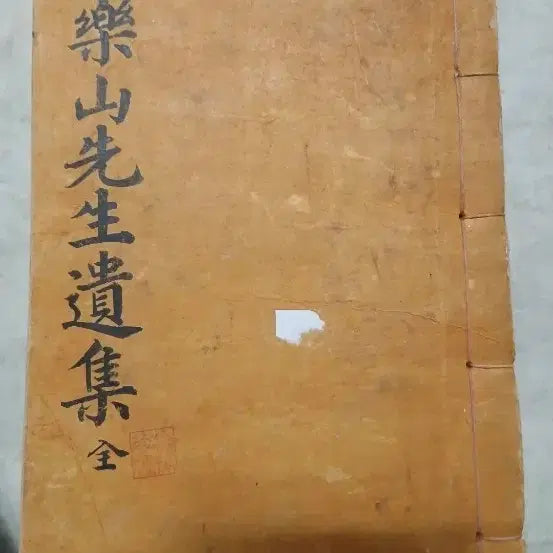 樂山先生遺集 全